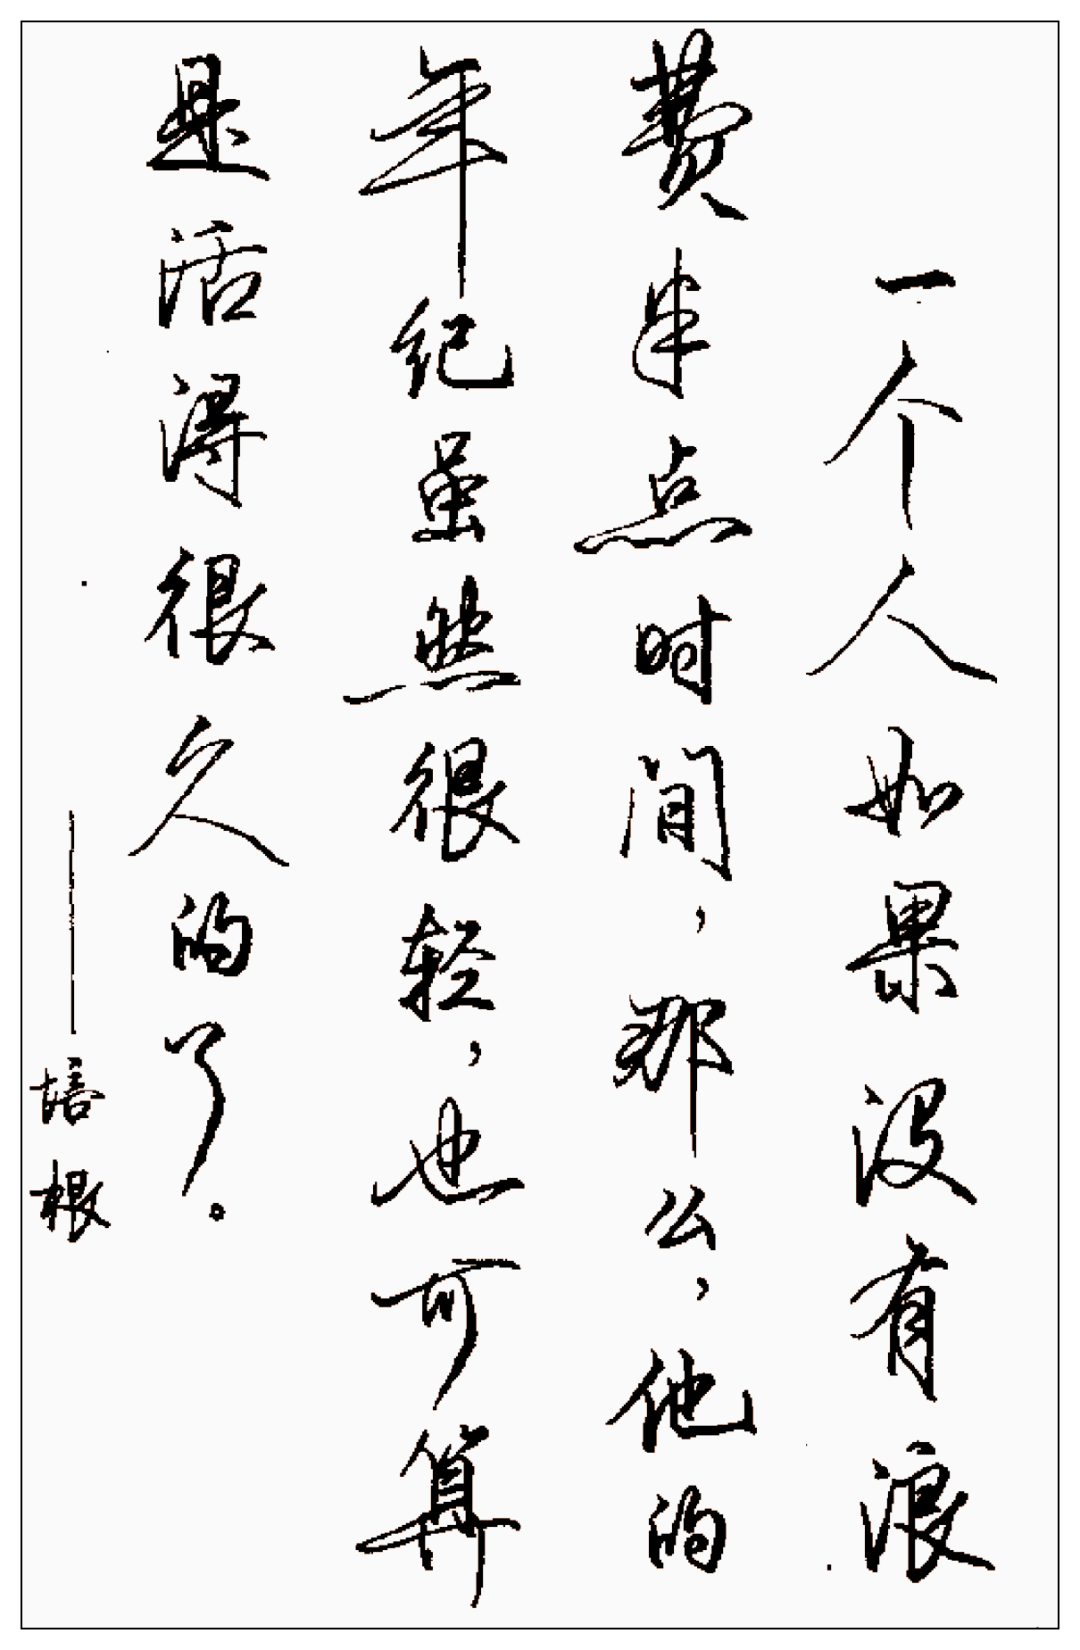 一个人如果没有浪
费半点时间，那么，他的
年纪虽然很轻，也可算
是活得很久的了。
——培根